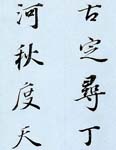 古定尋丁
河秋度天